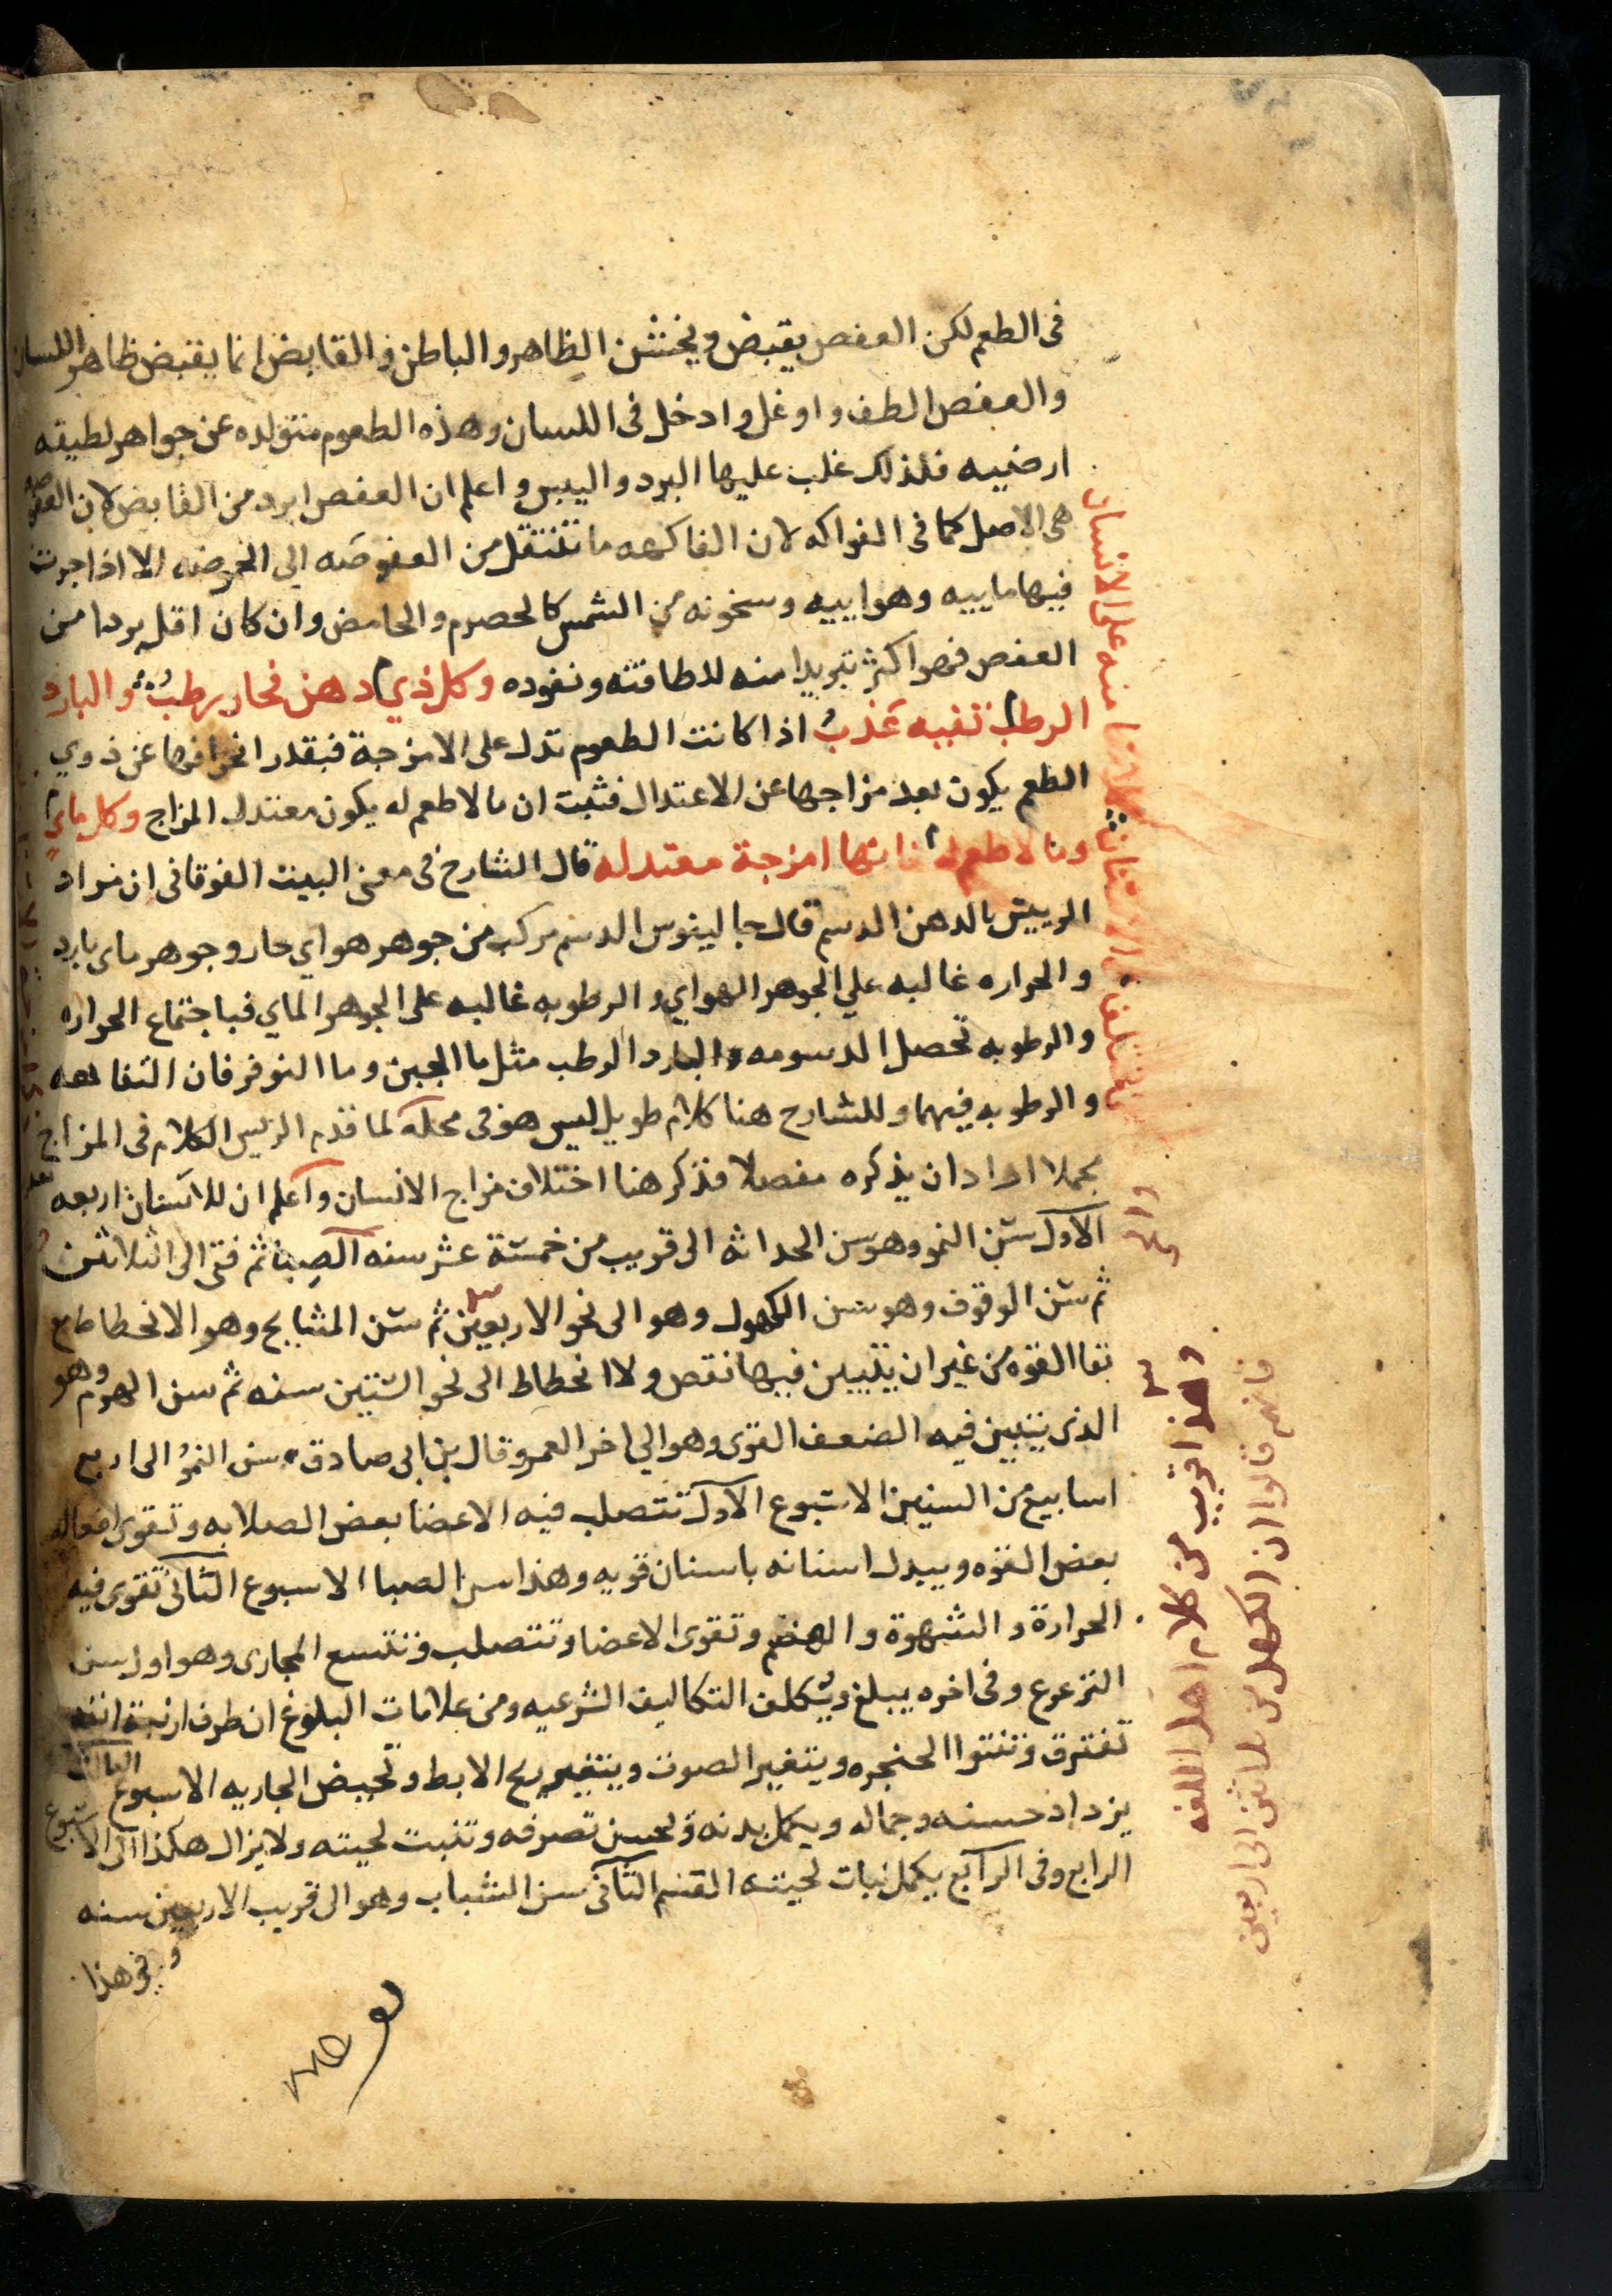 فى الطعم لكن العفص يقبض ويخشن الظاهر والباطن والقابض انما يقبض ظاهر اللسان
والعفص الطف واوغل وادخل فى اللسان وهذه الطعوم متولده عن جواهر لطيفه
ارضييه فلذلك غلب عليها البرد واليبس واعلم ان العفص ابرد من القابض لان العفوصه
هى الاصل كما فى الفواكه لان الفاكهه ما تنتقل من العفوصه الى الحموضه الا اذا جرت
فيها ماييه وهواييه وسخونه من الشمس كالحصرم والحامض وان كان اقل بردا من
العفص فهو اكثر تبريدا منه للطافته ونفوده وكل ذي دهن فحار رطبٌ والبارد
الرطب تفيه عَذبُ اذا كانت الطعوم تدل على الامزجة فبقدر انحرافها عن ذوي
الطعم يكون بعد مزاجها عن الاعتدال فثبت ان ما لا طعم له يكون معتدل المزاج وكل ماي
وما لا طعم له فانها امزجة معتدله قال الشارح فى معنى البيت الفوقانى ان مراد
الرييس بالدهن الدسم قال جالينوس الدسم مركب من جوهر هواي حار وجوهر ماى بارد
والحراره غالبه علي الجوهر الهواي والرطوبه غالبه على الجوهر الماي فباجتماع الحراره
والرطوبه تحصل الدسومه والبارد الرطب مثل ما الجبن وما النوفر فان التفاهه
والرطوبه فيهما وللشارح هنا كلام طويل ليس هو فى محله لما قدم الريس الكلام فى المزاج
مجملا اراد ان يذكره مفصلا فذكر هنا اختلاف مزاج الانسان واعلم ان للاسنان اربعه
الاول سن النمو وهو سن الحداثه الى قريب من خمسة عشر سنه الصبا ثم فتى الى الثلاثين
ثم سن الوقوف وهو سن الكهول وهو الى نحو الاربعين ثم سن المشايخ وهو الانحطاط مع
بقا القوه من غير ان يتبين فيها نقص ولا انحطاط الى نحو الستين سنه ثم سن الهرم وهو
الذى يتبين فيه الضعف القوى وهو الي اخر العمر وقال بن ابى صادق سن النموُ الى اربع
اسابيع من السنين الاسبوع الاول تتصلب فيه الاعضا بعض الصلابه وتقوى افعاله
بعض القوه ويبدل اسنانه باسنان قويه وهذا سن الصبا الاسبوع الثانى تقوى فيه
الحرارة والشهوة والهضم وتقوى الاعضا وتتصلب وتتسع المجارى وهو اول سن
الترعرع وفى اخره يبلغ ويُكلف التكاليف الشرعيه ومن علامات البلوغ ان طرف ارنبة انفه
تفترق وتنتوا الحنجره ويتغير الصوت ويتغير ريح الابط وتحيض الجاريه الاسبوع الثالث
يزداد حسنه وجماله ويكمل بدنه ويحسن تصرفه وتنبت لحيته ولا يزال هكذا الى الاسبوع
الرابع وفى الرابع يكمل نبات لحيته القسم الثانى سن الشباب وهو الى قريب الاربعين سنه
وفى هذا
وهذا قريب من كلام اهل اللغه
فانهم قالوا ان الكهل من ثلاثين الى اربعين